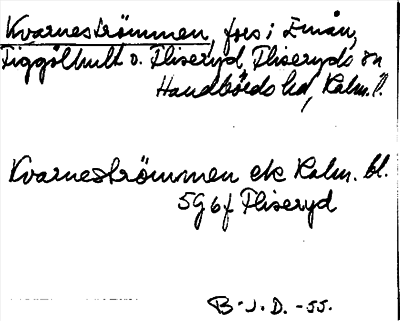 Kvarneströmmen, fors i Emån,
Tiggölhult o. Fliseryd, Fliseryds sn
Handbörds hd, Kalm. l.
Kvarneströmmen ek Kalm. bl.
5G6f Fliseryd
B.J.D. -55.